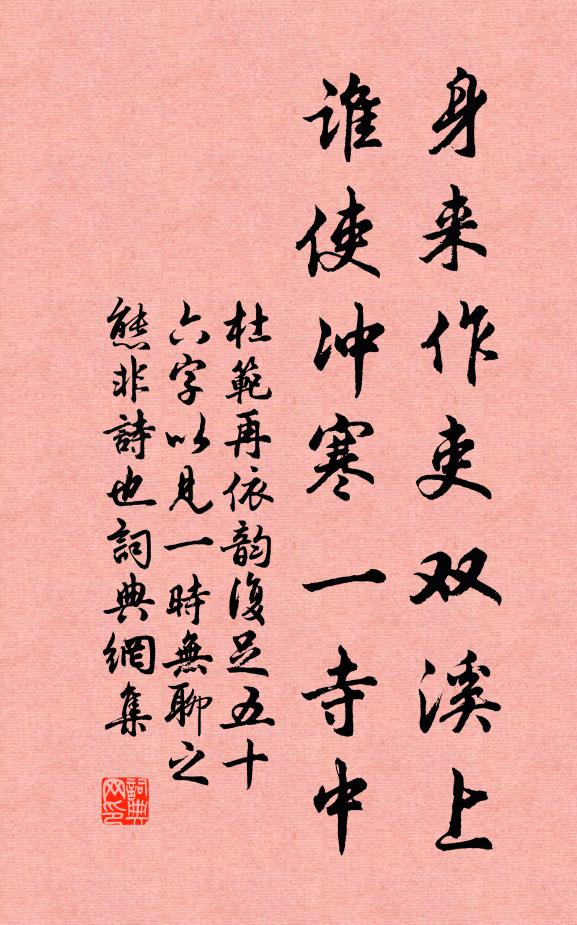 身来作吏双溪上
谁使冲寒一寺中
杜範再依韵復足五十
六字以見一時無聊之
態非詩也詞典網集
詞典网印